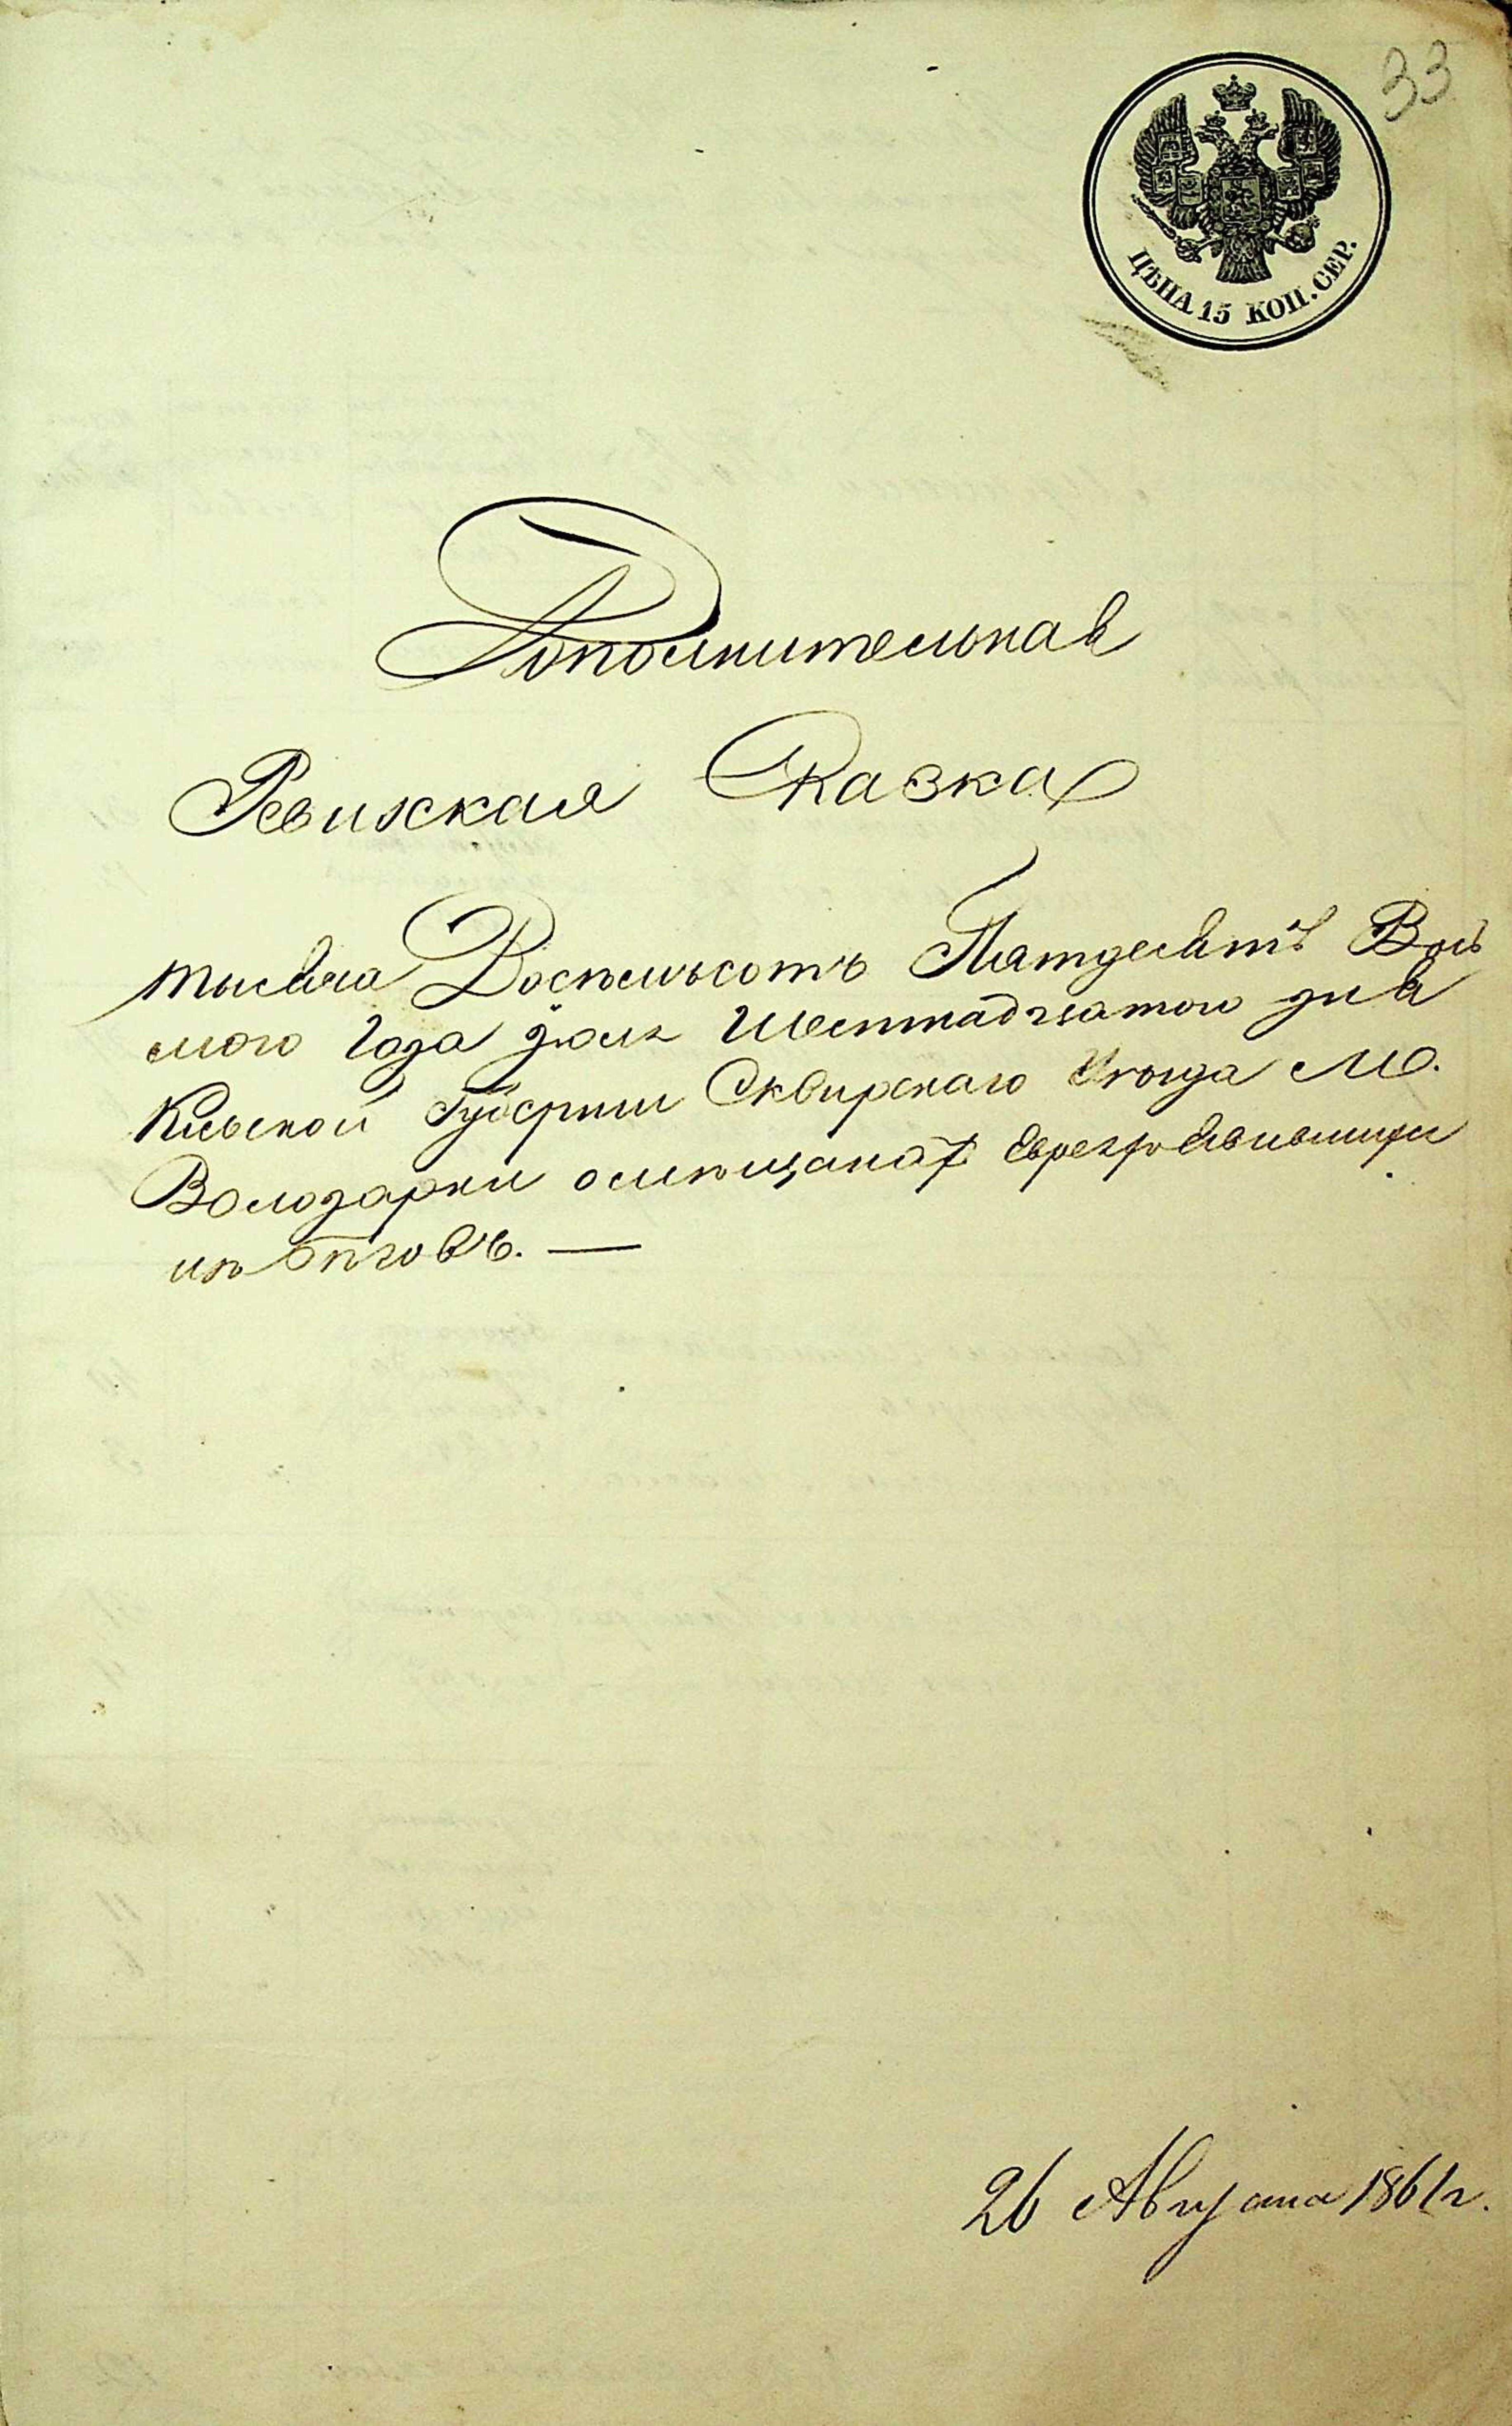 33
ЦѢНА 15 КОП. СЕР.
Дополнительная
Ревизская Сказка
тысяча Восемьсотъ Пятдесятъ Вось
мого Года Юля Шестнадцатого дня
Кіевской Губерніи Сквирскаго Уѣзда М.
Володарки омѣщанахъ Евреяхъ
изъ
26 Августа 1861 г.